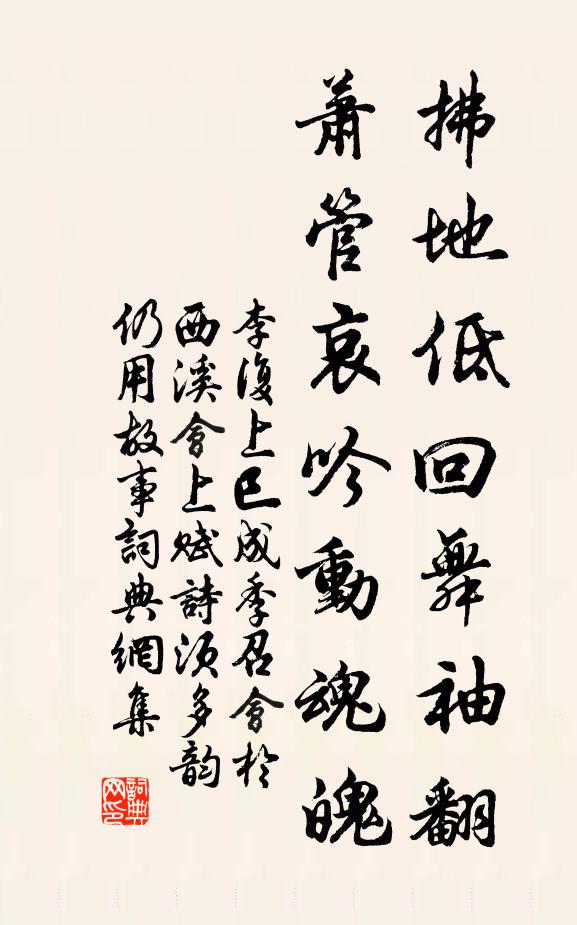 拂地低回舞袖翻
萧管哀吟動魂魄
李復上巳成季召會於
西溪會上赋詩須多韵
仍用故事詞典網集
詞典网印